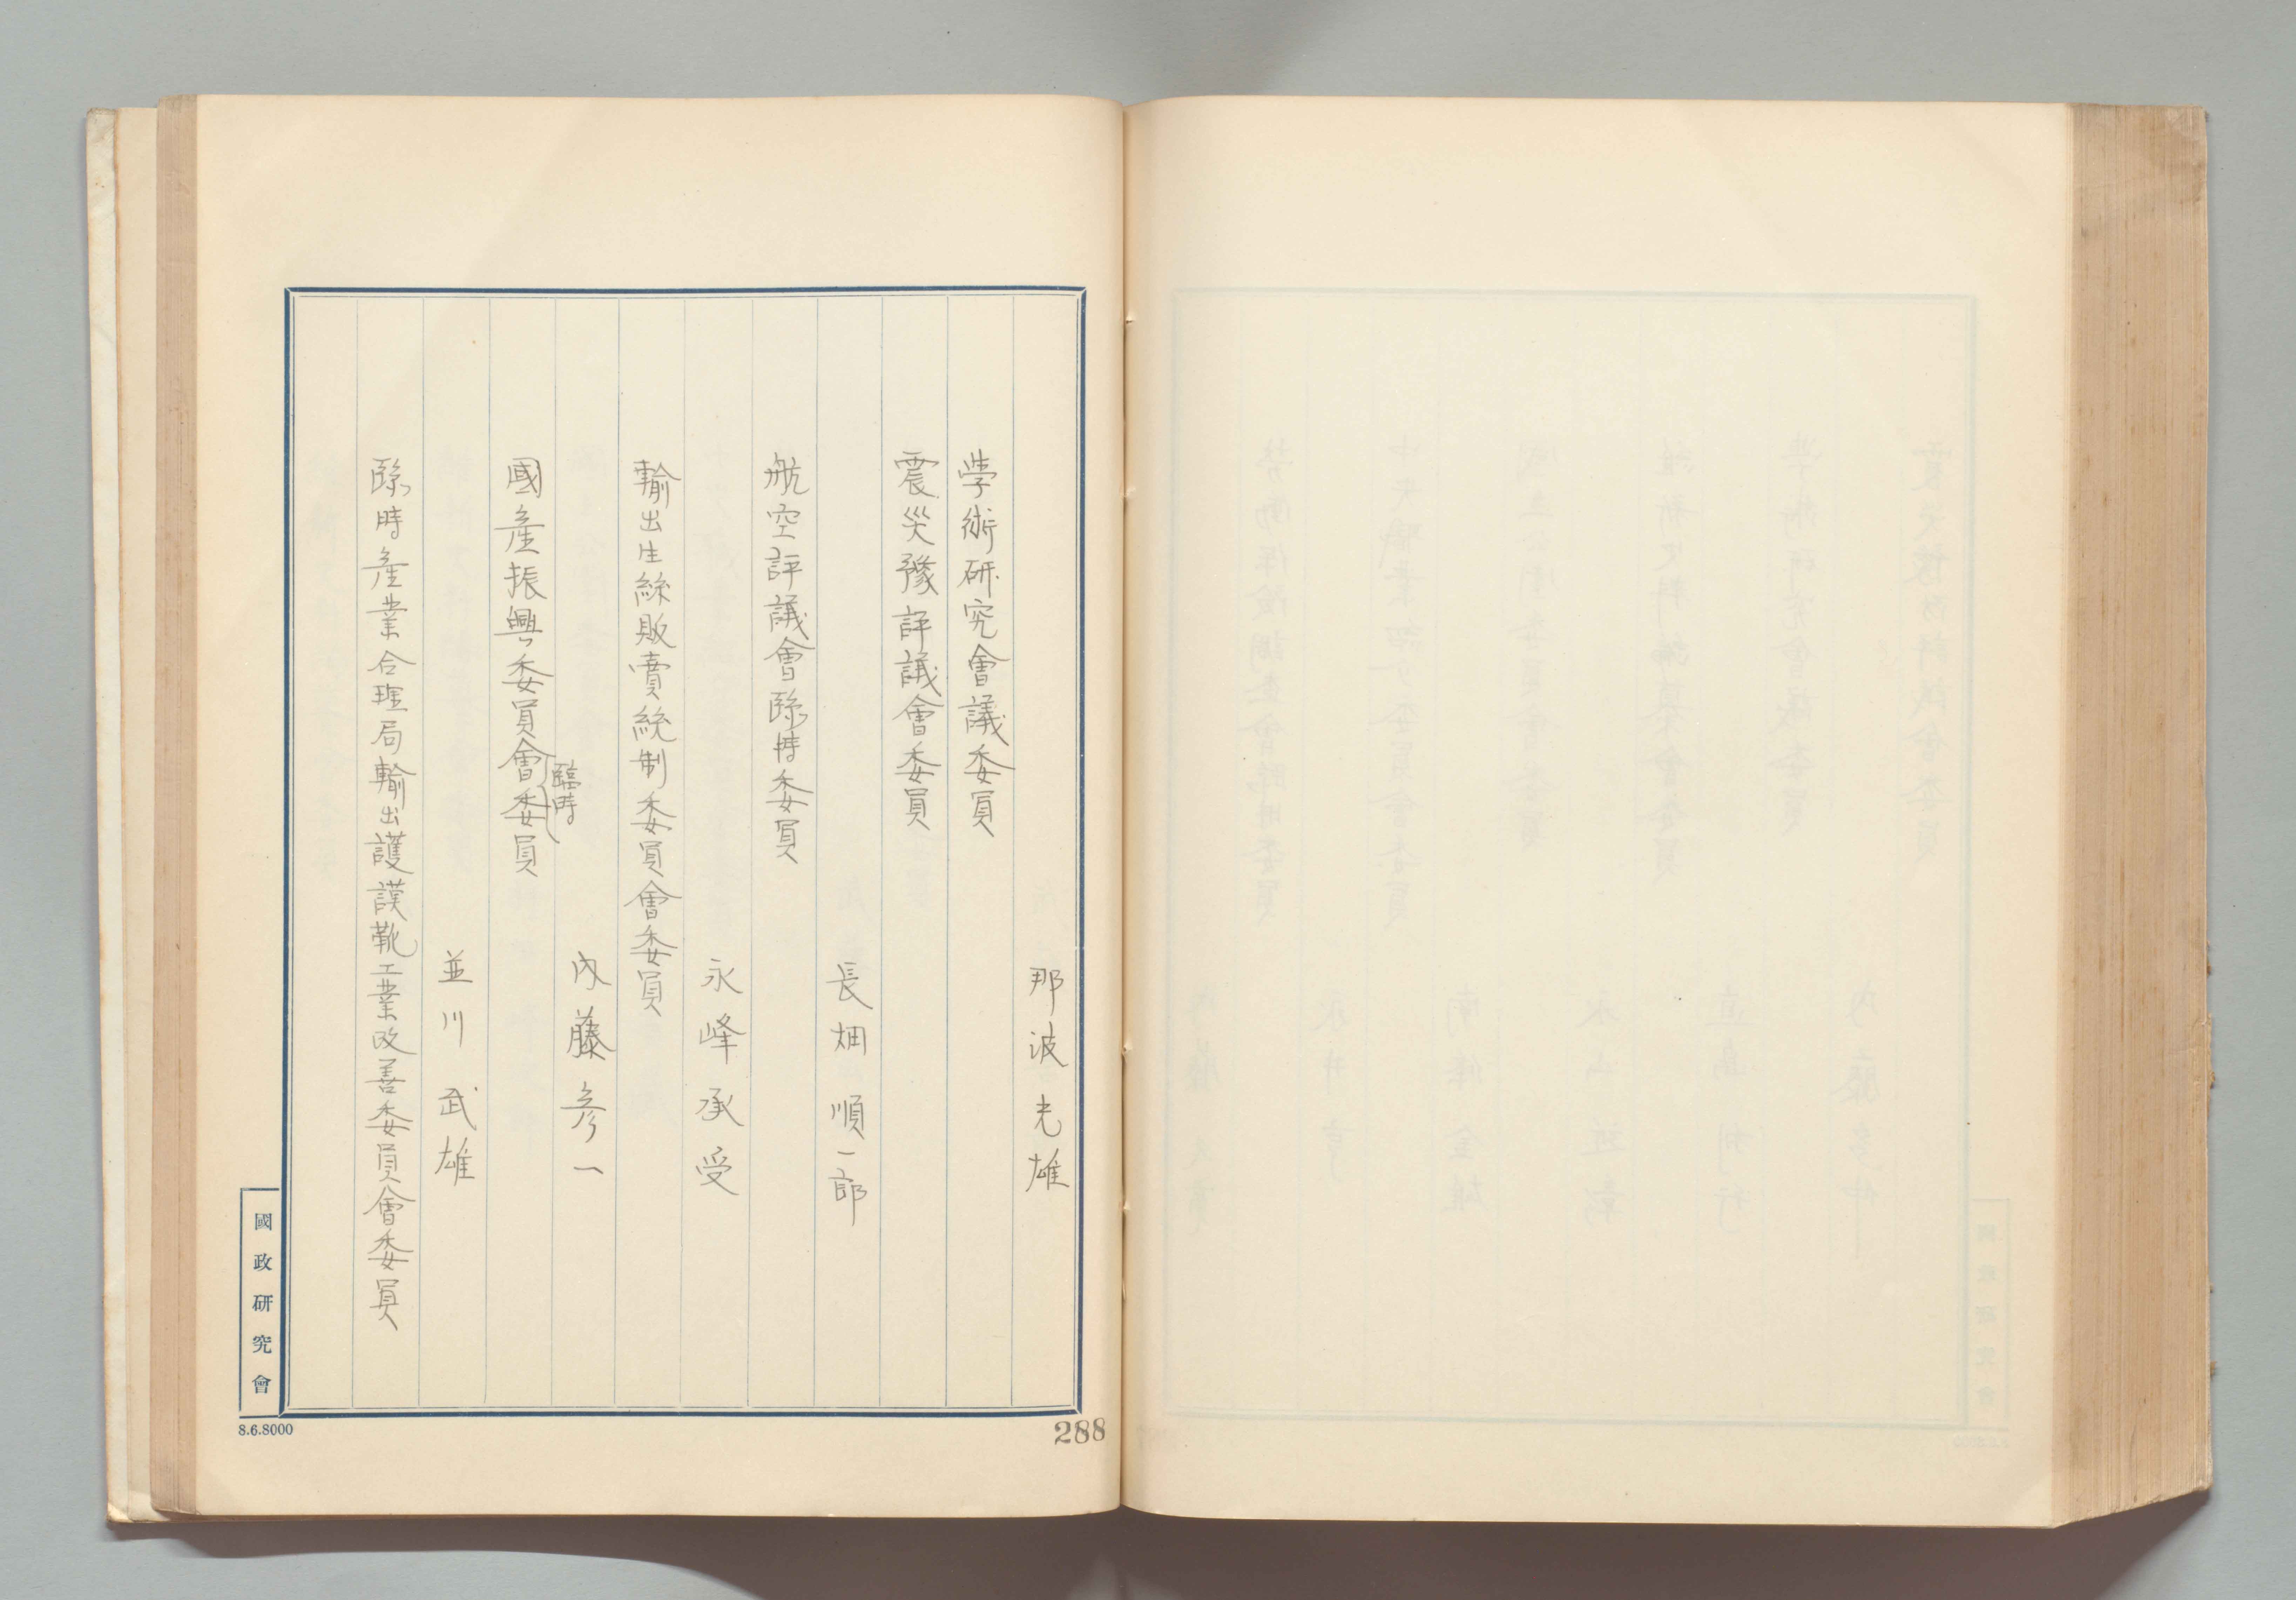 那波光雄
学術研究會議委員
震災豫評議會委員
長畑順一郎
航空評議會臨時委員
永峰承受
輸出生絲販賣統制委員會委員
内藤彦一
國產振興委員會委員
臨時
並川武雄
臨時產業合理局輸出護謨靴工業改善委員會委員
國政研究會
8.6.8000
288